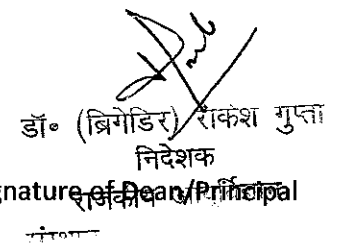 डॉ॰ (ब्रिगेडिर) राकेश गुप्ता
निदेशक
gnature of Dean/Principal
राजकीय